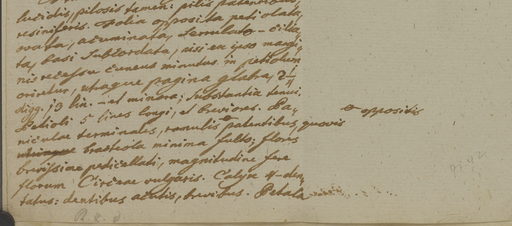 lucidis, pilosis tamen: pilis patentibus
resiniferis. Folia opposita petiolata,
ovata, acuminata, serrulato-cilia
ta, basi subcordata, nisi ea ipso margi
nis recessu cuneus minutus in petiolum
oriatur, utraque pagina glabra, 2-4
digg. j 3 lin. - et minora; substantia tenui.
Petioli 5 lines longi, et breviores. Pa-
niculae terminales, ramulis patentibus, quovis
et oppositis
bracteola minima fulto; flores
brevissime pedicellati, magnitudine fere
florum Circeae vulgaris. Calyx 4-den-
tatus: dentibus acutis, brevibus. Petala